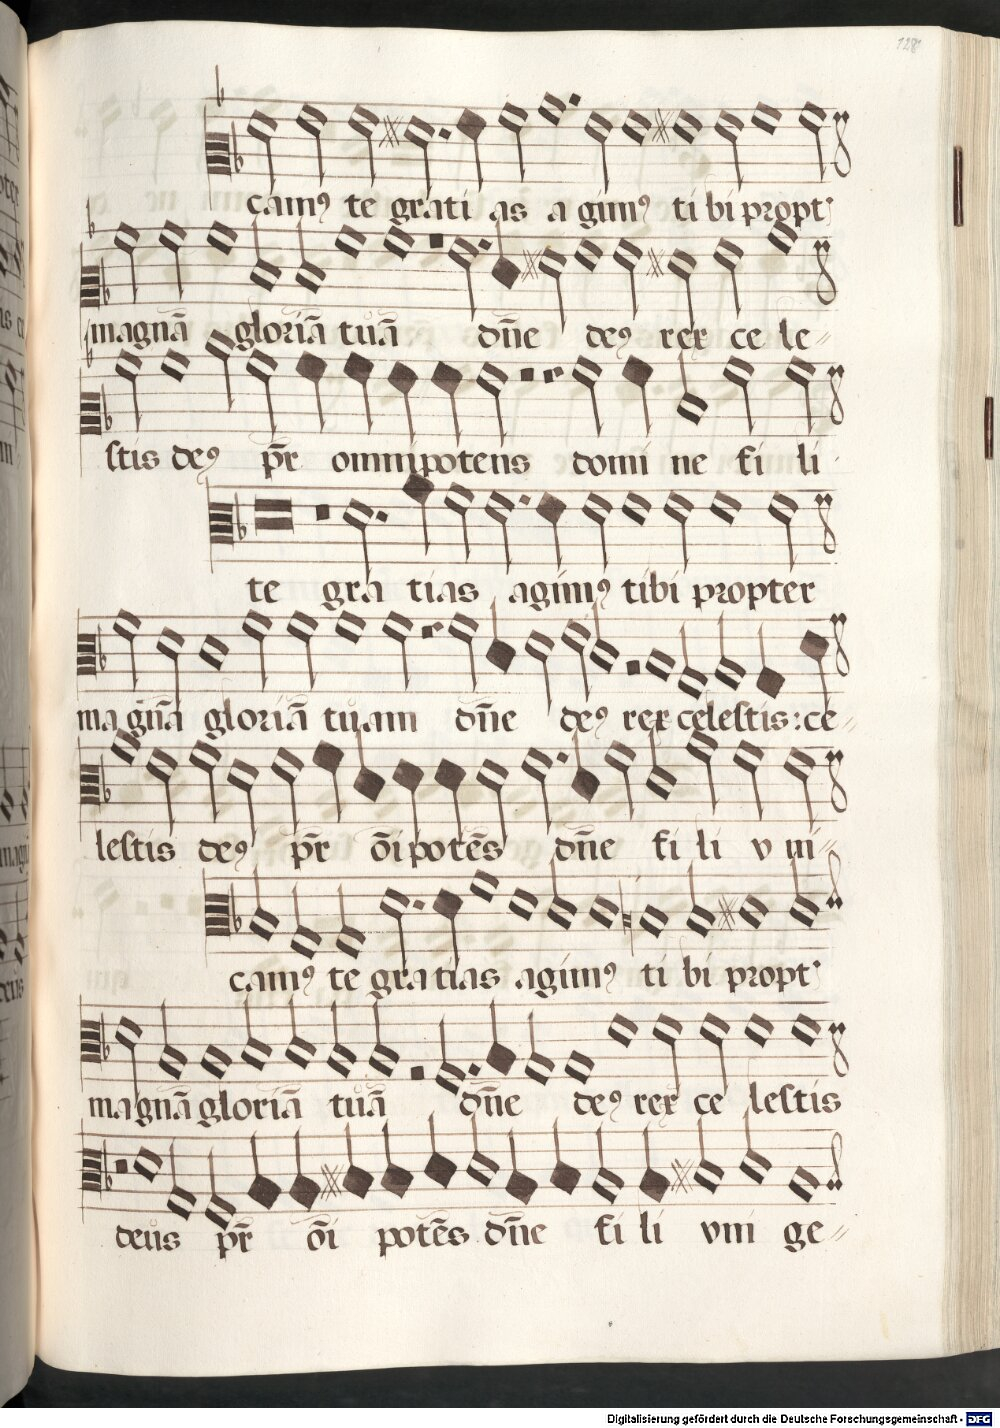 128
camꝰ te grati as a gimꝰ ti bi propt᷒
magnā gloriā tuā dn̄e deꝰ rex ce le
stis deꝰ pr̄ omnipotens domi ne fi li
te gra tias agimꝰ tibi propter
ma gnā gloriā tuam dn̄e deꝰ rex celestis: ce
lestis deꝰ pr̄ oīpotēs dn̄e fi li v ni
camꝰ te gra tias agimꝰ ti bi propt᷒
magnā gloriā tuā dn̄e deꝰ rex ce lestis
deus pr̄ oī potēs dn̄e fi li vni ge
Digitalisierung gefördert durch die Deutsche Forschungsgemeinschaft - DFG